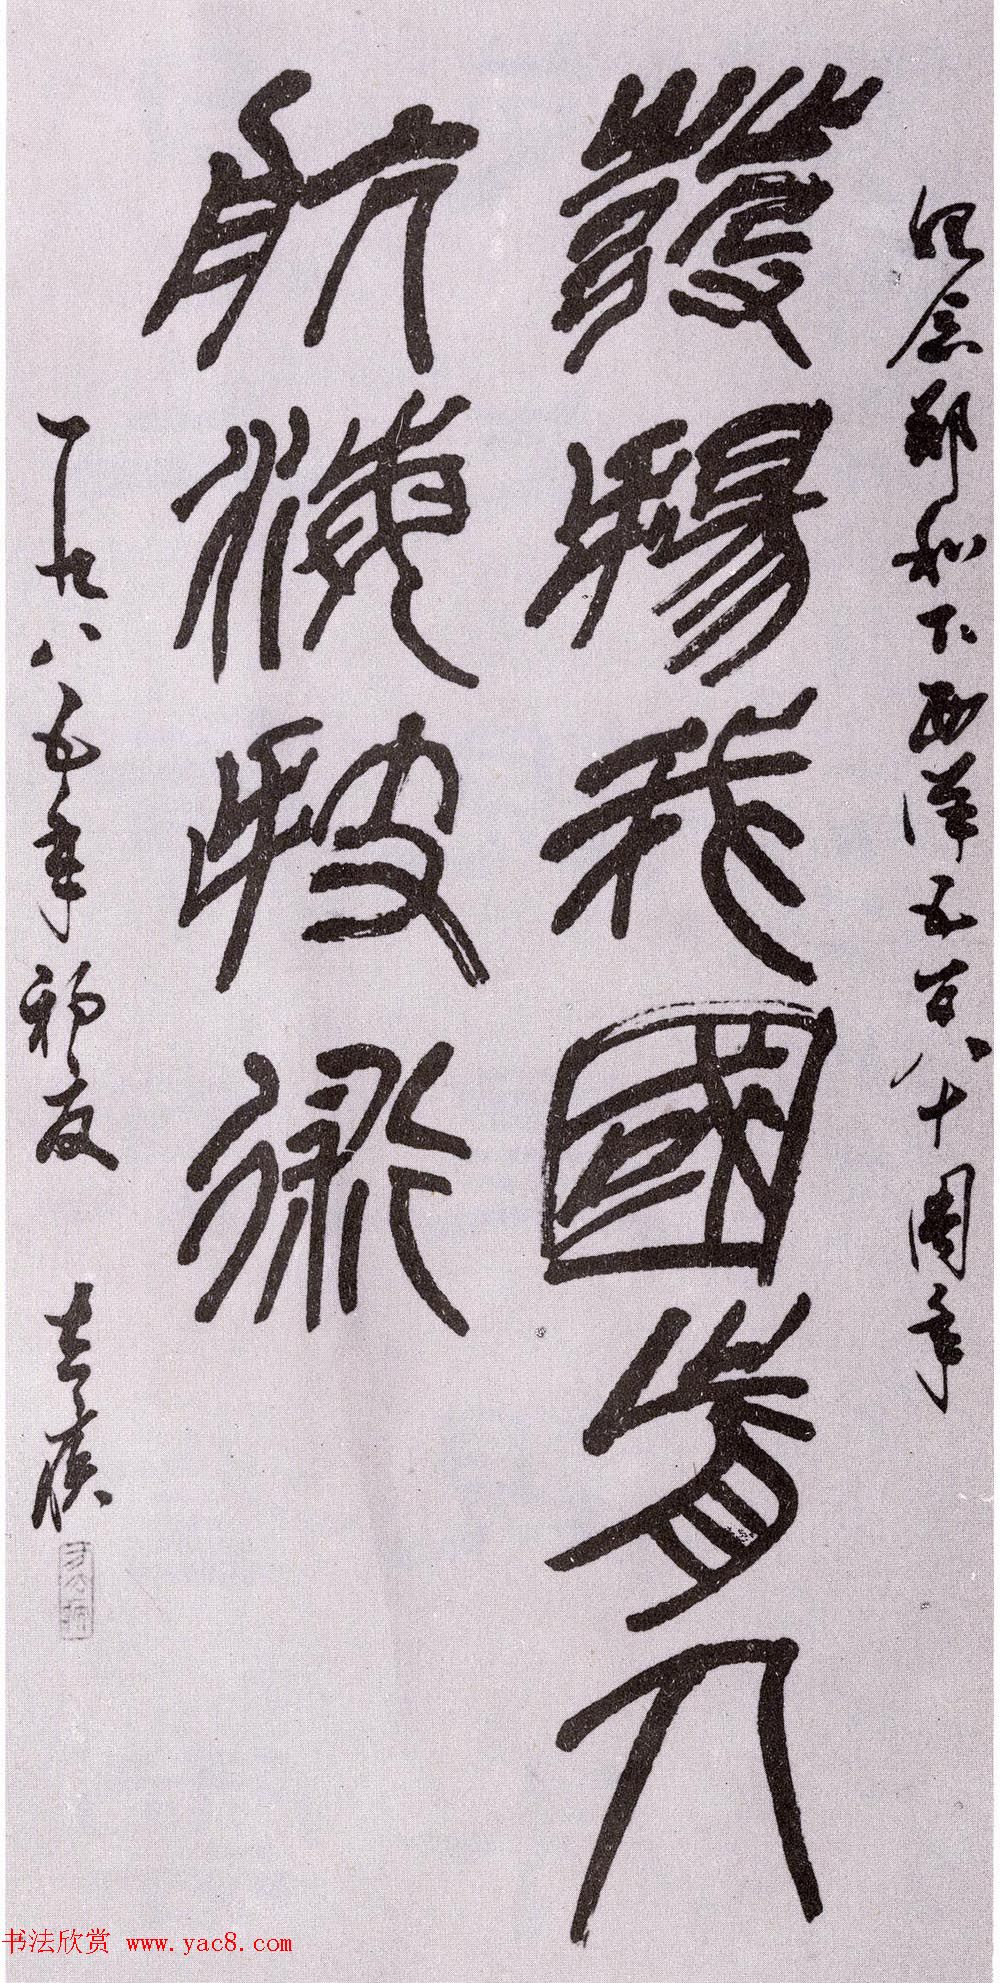 紀念鄭和下西洋五百八十周年
發揚我國前人
航海技術
一九八五年初夏 去疾
书法欣赏 www.yac8.com